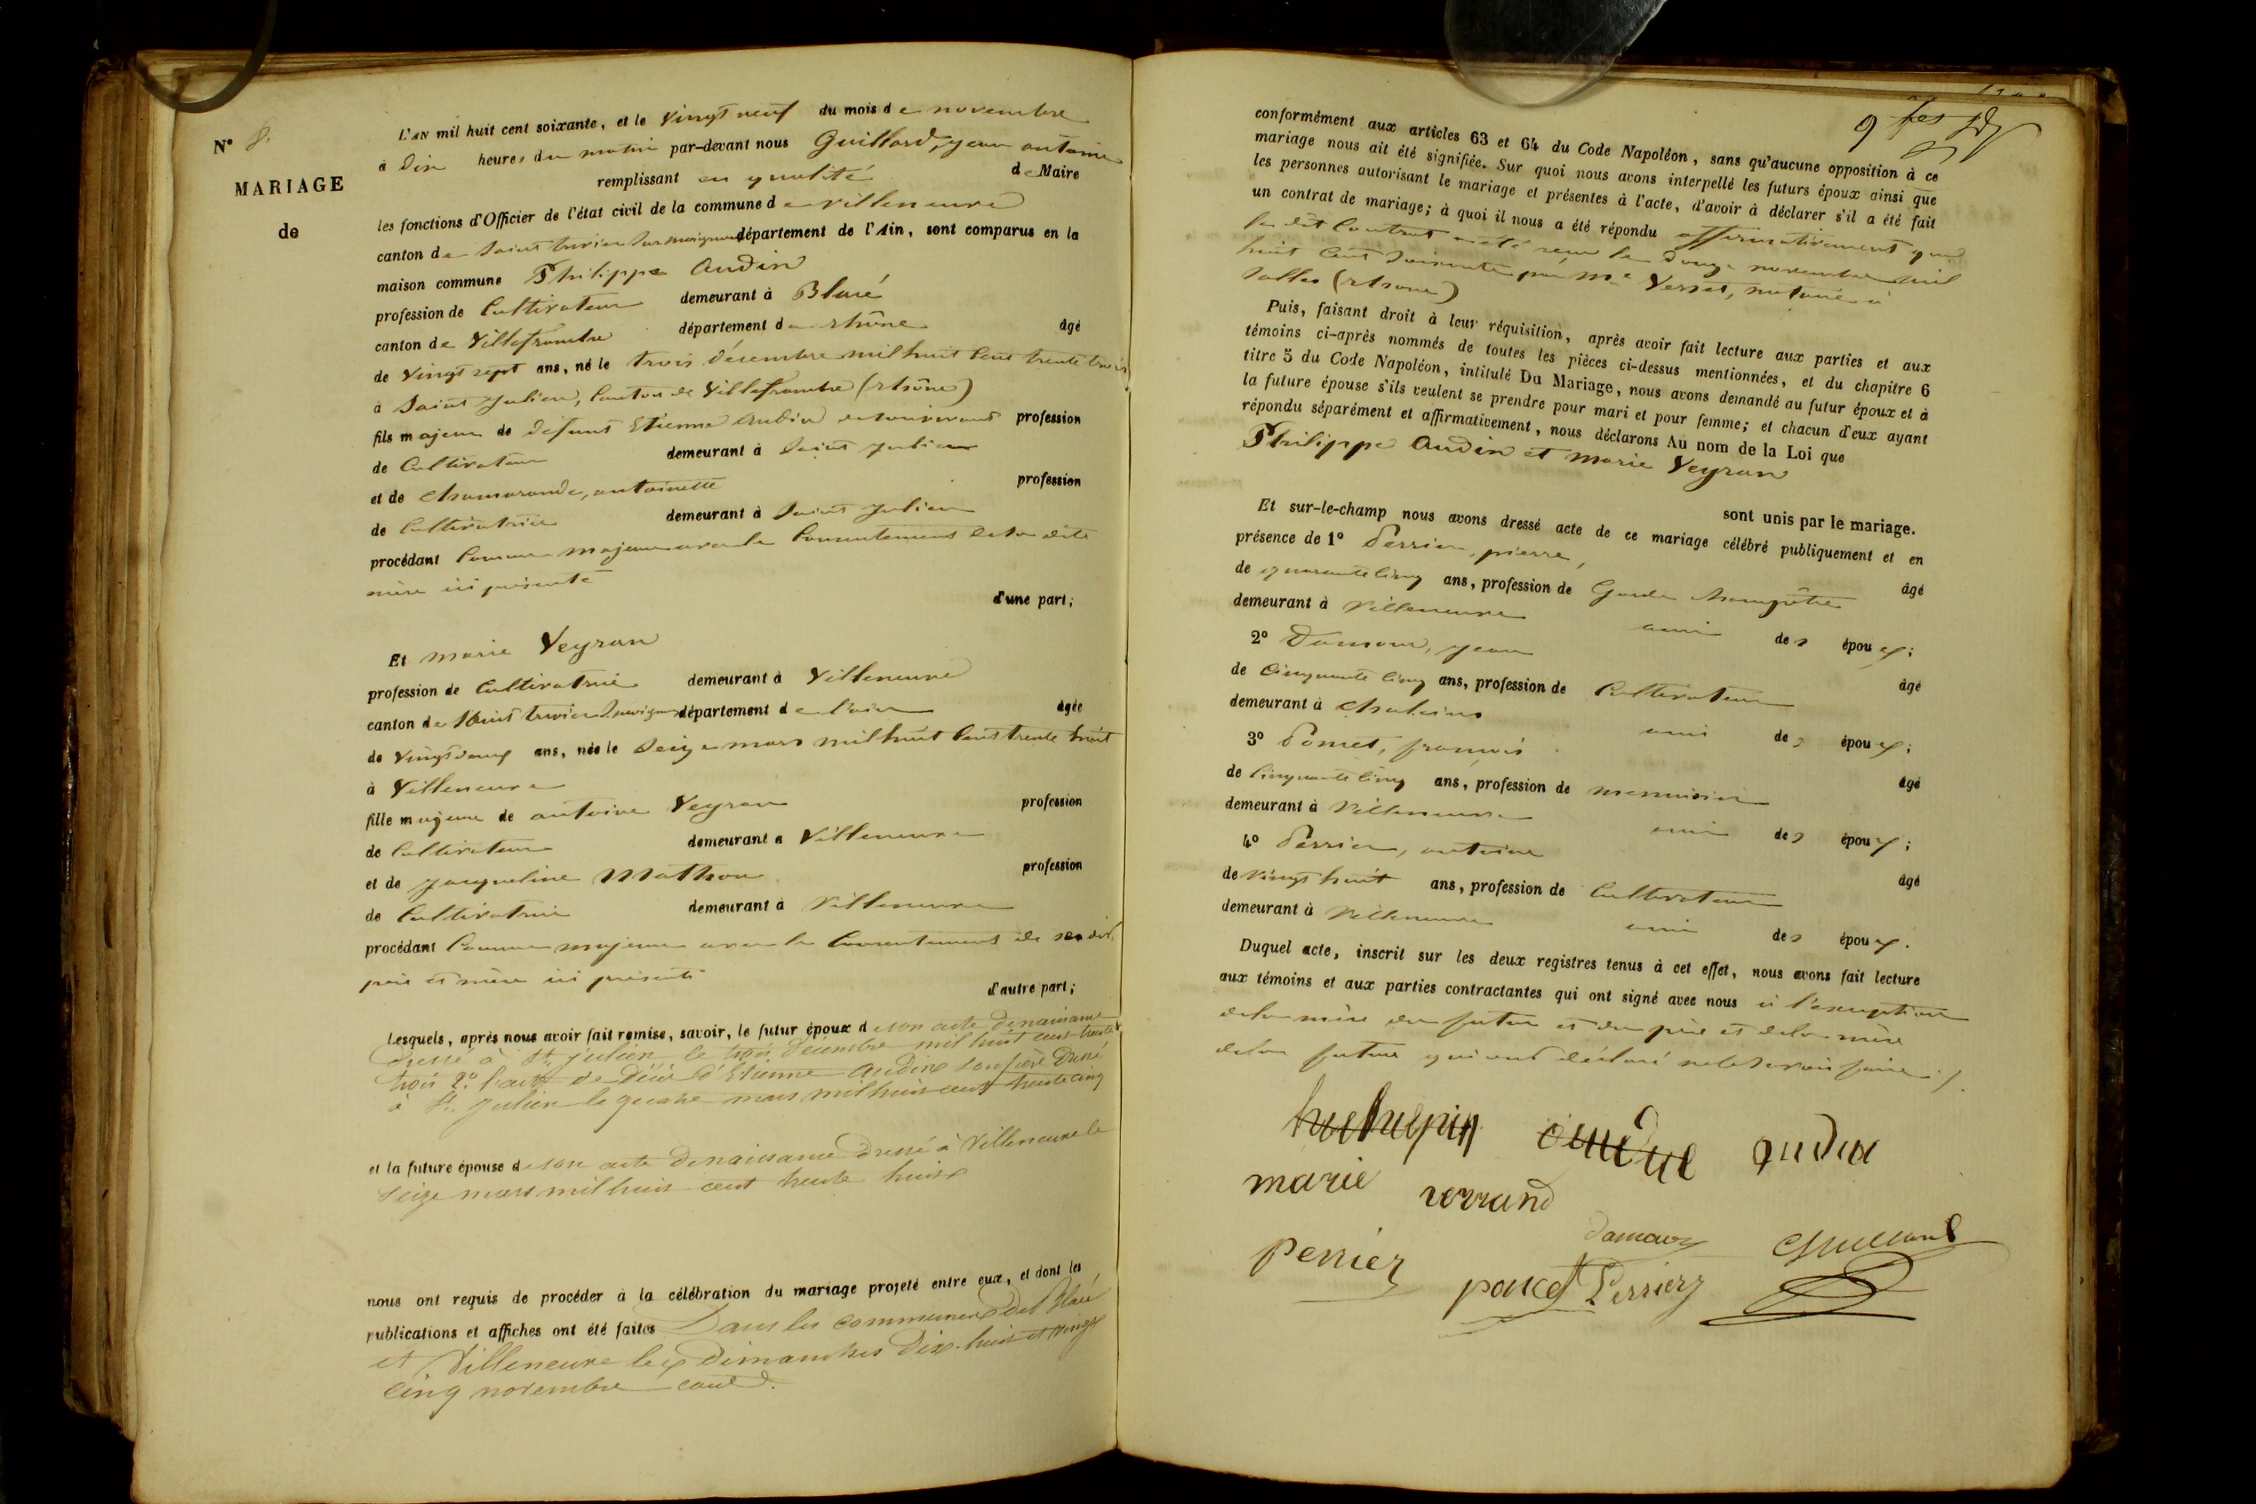 N° 8.
MARIAGE
de
L'AN mil huit cent soixante, et le vingt neuf du mois de novembre
à dix heures du matin par-devant nous Guillard, jean antoine
remplissant en qualité de Maire
les fonctions d'Officier de l'état civil de la commune de villeneuve
canton de Saint trivier Sur moignans département de l'Ain, sont comparus en la
maison commune Philippe Audin
profession de Cultivateur demeurant à Blacé
canton de Villefranche département du rhône âgé
de vingt sept ans, né le trois décembre mil huit Cent trente trois
à Saint Julien, Canton de Villefranche (rhône)
fils majeur de défunt Etienne Audin profession
de Cultivateur demeurant à Saint Julien
et de Chamarande, antoinette profession
de Cultivatrice demeurant à Saint Julien
procédant Comme majeur avec le Consentement de sa dite
mère ici présente
d'une part;
Et marie Veyran
profession de Cultivatrice demeurant à Villeneuve
canton de Saint trivier Sur moignans département de l'ain âgée
de vingt deux ans, née le Seize mars mil huit Cent trente huit
à Villeneuve
fille majeure de antoine Veyran profession
de Cultivateur demeurant à Villeneuve
et de jacqueline Mathon profession
de Cultivatrice demeurant à Villeneuve
procédant Comme majeure avec le Consentement de ses dits
père et mère ici présents
d'autre part;
Lesquels, après nous avoir fait remise, savoir, le futur époux de son acte de naissance
dressé à St. Julien le trois décembre mil huit cent trente
trois 2° l'acte de décès d'Etienne Audin son père dressé
à St. Julien le quatre mars mil huit cent trente cinq
et la future épouse de son acte de naissance dressé à Villeneuve le
seize mars mil huit cent trente huit
nous ont requis de procéder à la célébration du mariage projeté entre eux, et dont les
publications et affiches ont été faites Dans les communes de Blacé
et Villeneuve les dimanches dix-huit et vingt
cinq novembre
conformément aux articles 63 et 64 du Code Napoléon, sans qu'aucune opposition à ce
mariage nous ait été signifiée. Sur quoi nous avons interpellé les futurs époux ainsi que
les personnes autorisant le mariage et présentes à l'acte, d'avoir à déclarer s'il a été fait
un contrat de mariage; à quoi il nous a été répondu affirmativement que
le dit Contrat a été reçu le douze novembre mil
huit Cent Soixante par Me Verset, notaire à
Salles (rhone)
Puis, faisant droit à leur réquisition, après avoir fait lecture aux parties et aux
témoins ci-après nommés de toutes les pièces ci-dessus mentionnées, et du chapitre 6
titre 5 du Code Napoléon, intitulé Du Mariage, nous avons demandé au futur époux et à
la future épouse s'ils veulent se prendre pour mari et pour femme; et chacun d'eux ayant
répondu séparément et affirmativement, nous déclarons Au nom de la Loi que
Philippe Audin et marie Veyran
sont unis par le mariage.
Et sur-le-champ nous avons dressé acte de ce mariage célébré publiquement et en
présence de 1° Perrier, pierre, âgé
de quarante cinq ans, profession de Garde champêtre
demeurant à Villeneuve ami des époux;
2° Damour, jean âgé
de Cinquante cinq ans, profession de Cultivateur
demeurant à Chaleins ami des époux;
3° Poncet, françois âgé
de Cinquante cinq ans, profession de menuisier
demeurant à Villeneuve ami des époux;
4° Perrier, antoine âgé
de vingt huit ans, profession de Cultivateur
demeurant à Villeneuve ami des époux.
Duquel acte, inscrit sur les deux registres tenus à cet effet, nous avons fait lecture
aux témoins et aux parties contractantes qui ont signé avec nous à l'exception
de la mère du futur et du père et de la mère
de la future qui ont déclaré ne le savoir faire ./.
audin
marie verrand
damour Guillard
Perrier
poncet Perrier